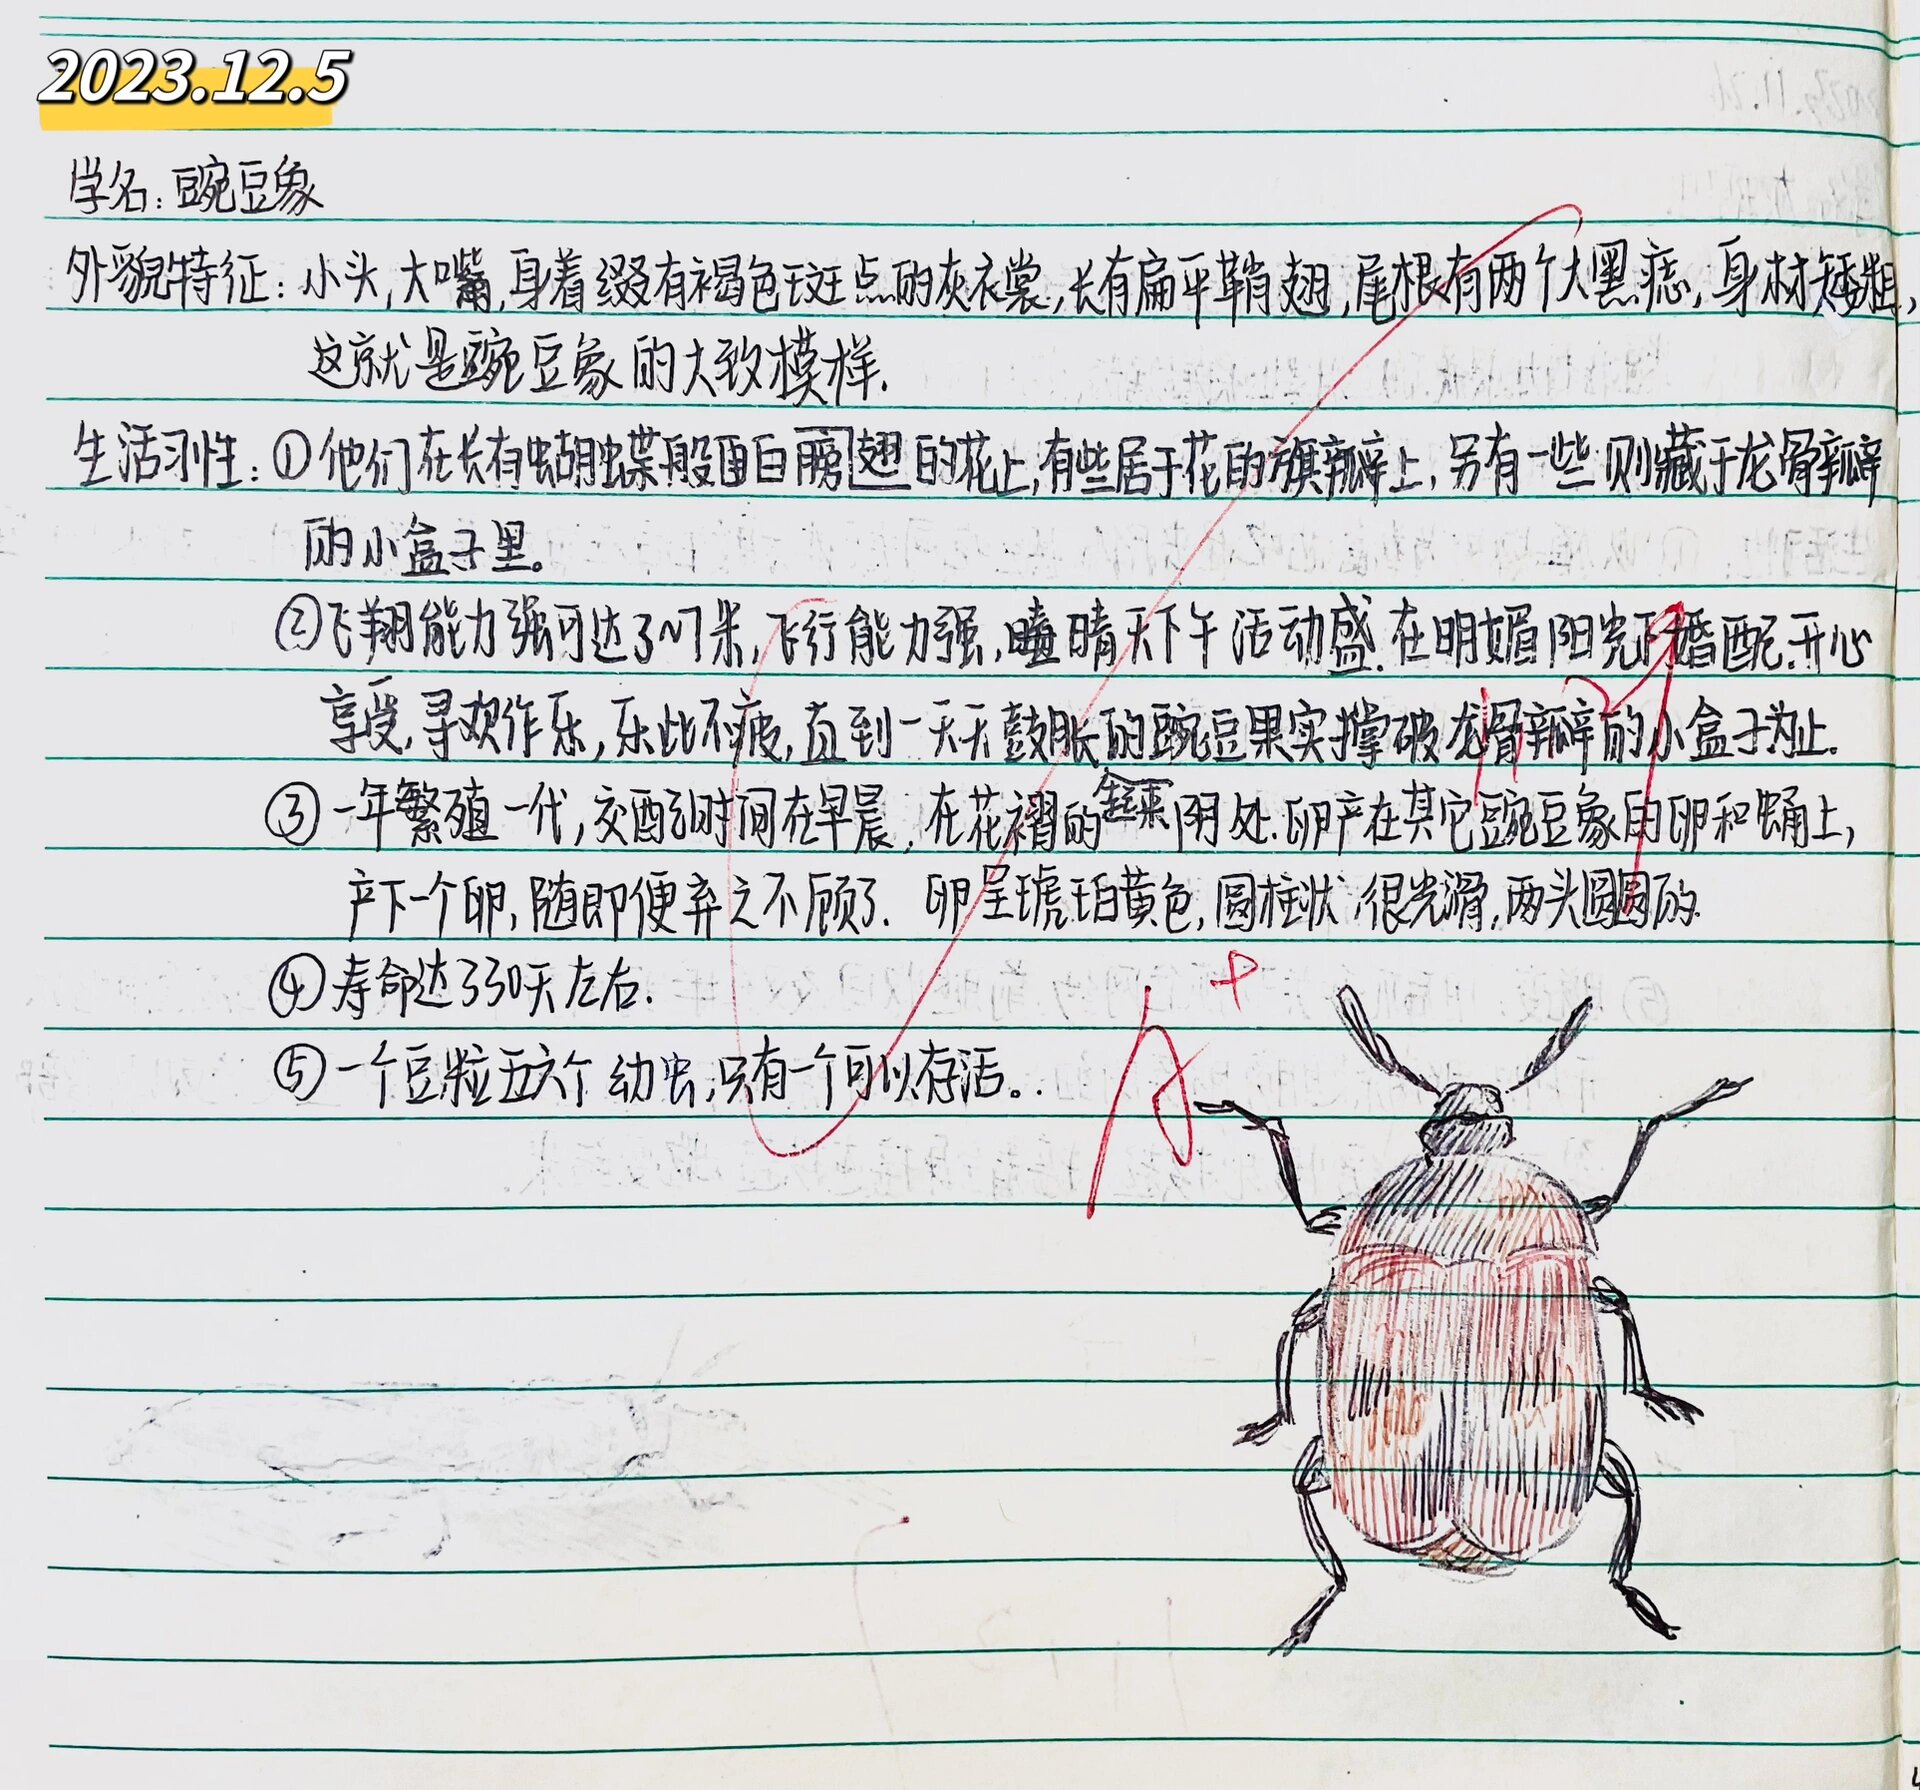 2023.12.5
学名：豌豆象
外貌特征：小头，大嘴，身着缀有褐色斑点的灰衣裳，长有扁平鞘翅，尾根有两个大黑痣，身材矮粗，
这就是豌豆象的大致模样.
生活习性：①他们在长有蝴蝶般面白翅的花上，有些居于花的旗瓣上，另有一些则藏于龙骨瓣
的小盒子里。
②飞翔能力强可达3～7米，飞行能力强，晴天下午活动盛.在明媚阳光下婚配.开心
享受，寻欢作乐，乐此不疲，直到一天天鼓胀的豌豆果实撑破龙骨瓣的小盒子为止.
③一年繁殖一代，交配时间在早晨，在花褶的阴处.卵产在其它豌豆象的卵和蛹上，
产下一个卵，随即便弃之不顾了.卵呈琥珀黄色，圆柱状，很光滑，两头圆圆的.
④寿命达330天左右.
⑤一个豆粒五六个幼虫，只有一个可以存活。.
A+